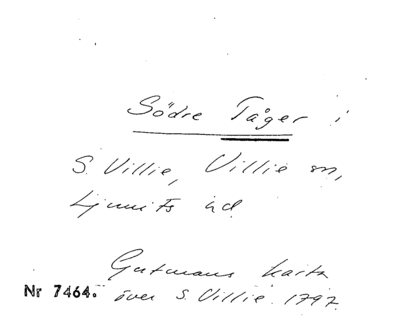 Södre Tåger i
S. Villie, Villie sn,
Ljunits hd.
Gutmans karta
Nr 7464. över S. Villie. 1797.